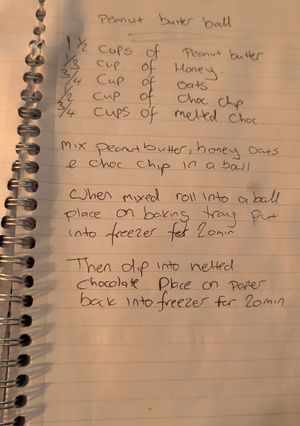 Peanut butter ball
1 1/2 cups of Peanut butter
1/3 cup of Honey.
3/4 cup of oats
1/2 cup of choc chip
3/4 cups of melted choc
mix peanutbutter, honey oats
& choc chip in a ball
When mixed roll into a ball
place on baking tray put
into freezer for 20min
Then dip into melted
chocolate. Place on paper
back into freezer for 20min